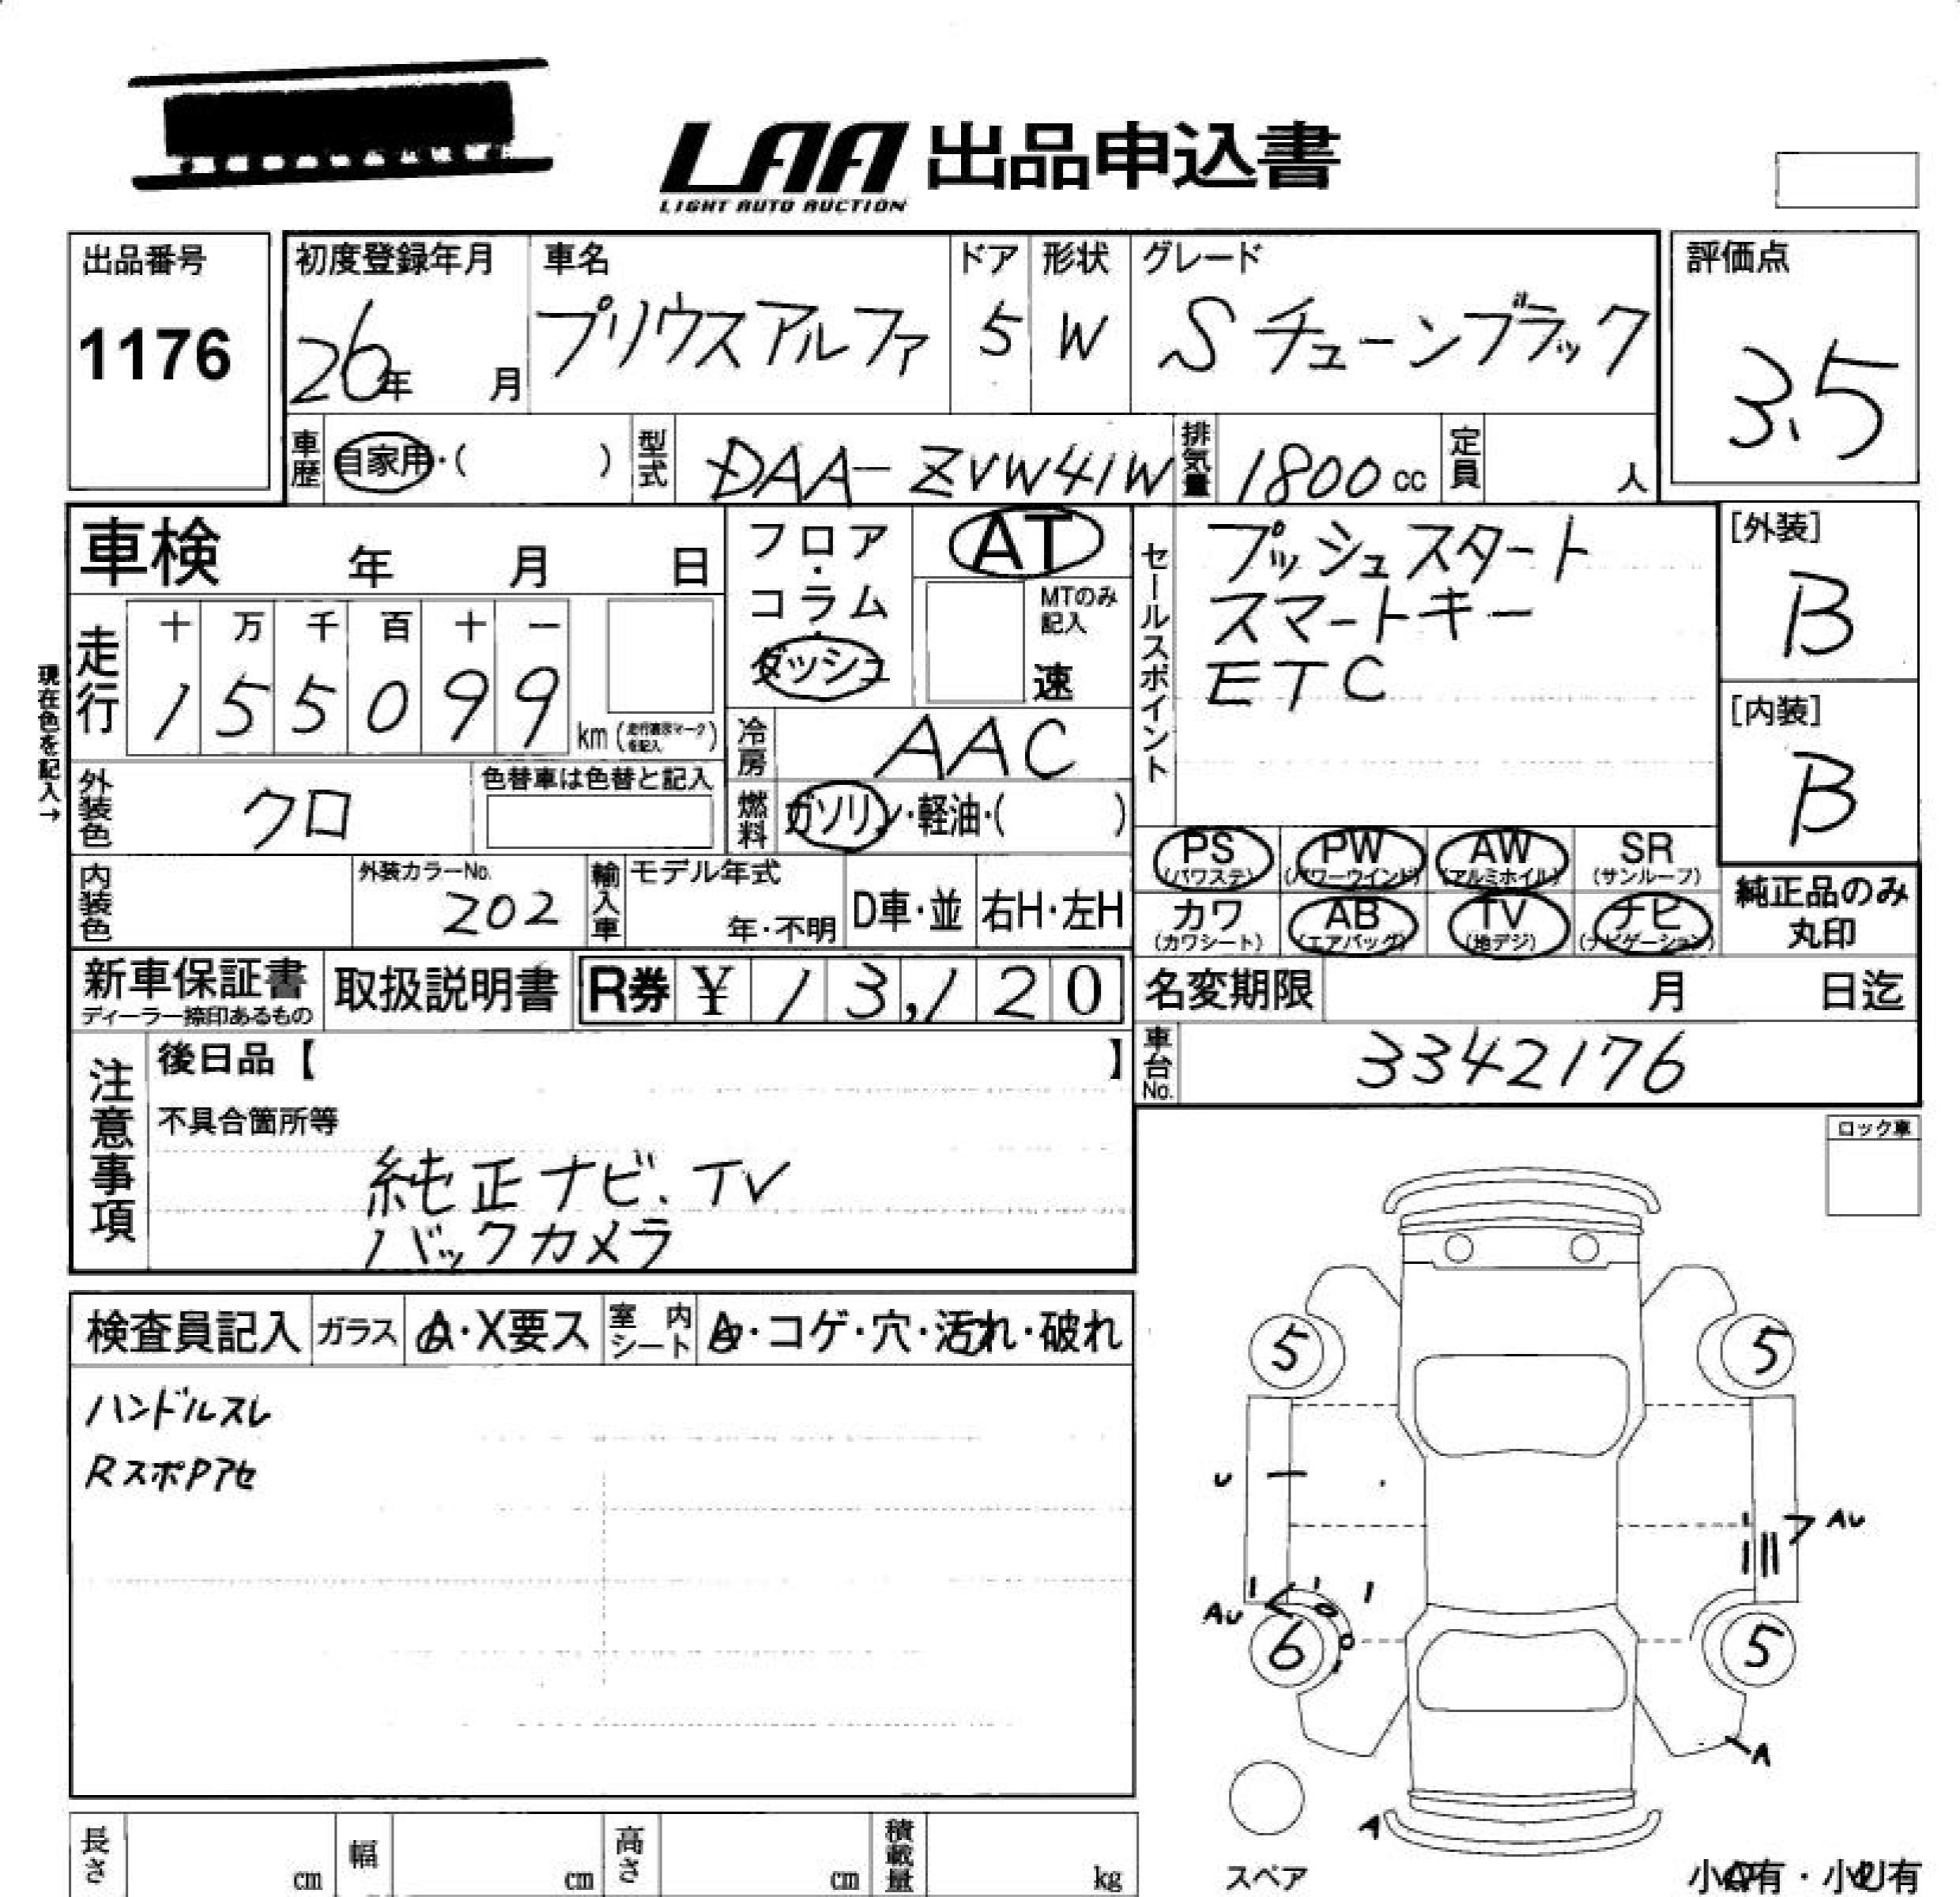 LAA 出品申込書
LIGHT AUTO AUCTION
出品番号
1176
初度登録年月
26年 月
車名
プリウスアルファ
ドア
5
形状
W
グレード
Sチューンブラック
評価点
3.5
車歴 自家用・( )
型式 DAA-ZVW41W
排気量 1800cc
定員 人
車検 年 月 日
現在色を記入→
走行
十 万 千 百 十 一
1 5 5 0 9 9 km
外装色 クロ
色替車は色替と記入
内装色
外装カラーNo.
202
輸入車
モデル年式
年・不明
D車・並
右H・左H
フロア・コラム・ダッシュ
AT
MTのみ記入
速
冷房 AAC
燃料 ガソリン・軽油・( )
セールスポイント
プッシュスタート
スマートキー
ETC
[外装]
B
[内装]
B
PS (パワステ)
PW (パワーウインド)
AW (アルミホイル)
SR (サンルーフ)
カワ (カワシート)
AB (エアバッグ)
TV (地デジ)
ナビ (ナビゲーション)
純正品のみ
丸印
新車保証書
ディーラー捺印あるもの
取扱説明書
R券 ¥ 13,120
名変期限 月 日迄
車台No. 3342176
注意事項
後日品【 】
不具合箇所等
純正ナビ.TV
バックカメラ
ロック車
検査員記入
ガラス A・X要ス
室内シート A・コゲ・穴・汚れ・破れ
ハンドルスレ
RスポPアセ
5
5
U
AU
AU
6
5
A
A
スペア
小A有・小U有
長さ cm
幅 cm
高さ cm
積載量 kg